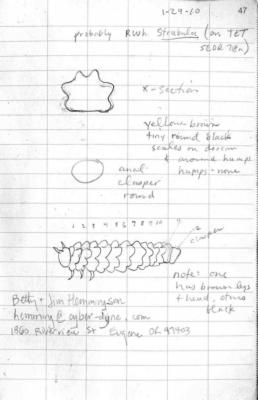 1-29-10
47
probably RWh Strabulus (on TET
SEDR Ten)
x-section
yellow brown
tiny round black
scales on dorsum
& around humps
humps = none
anal
clasper
round
1 2 3 4 5 6 7 8 9 10
clasper
note: one
has brown legs
+ head, others
black
Betty + Jim Hemmingson
hemming@cyber-dyne.com
1860 Riverview St Eugene OR 97403